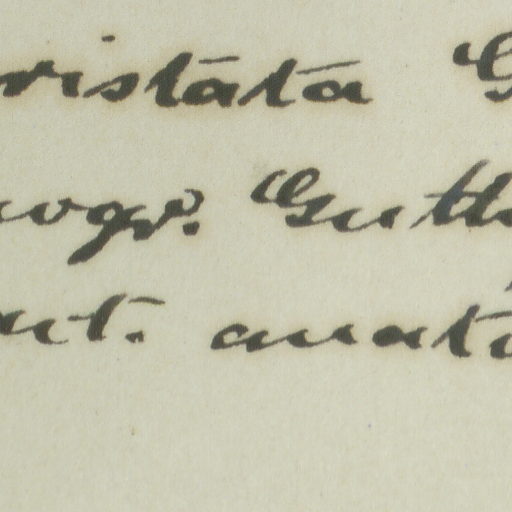 ristata G
nogr. Gutt
nt. anat